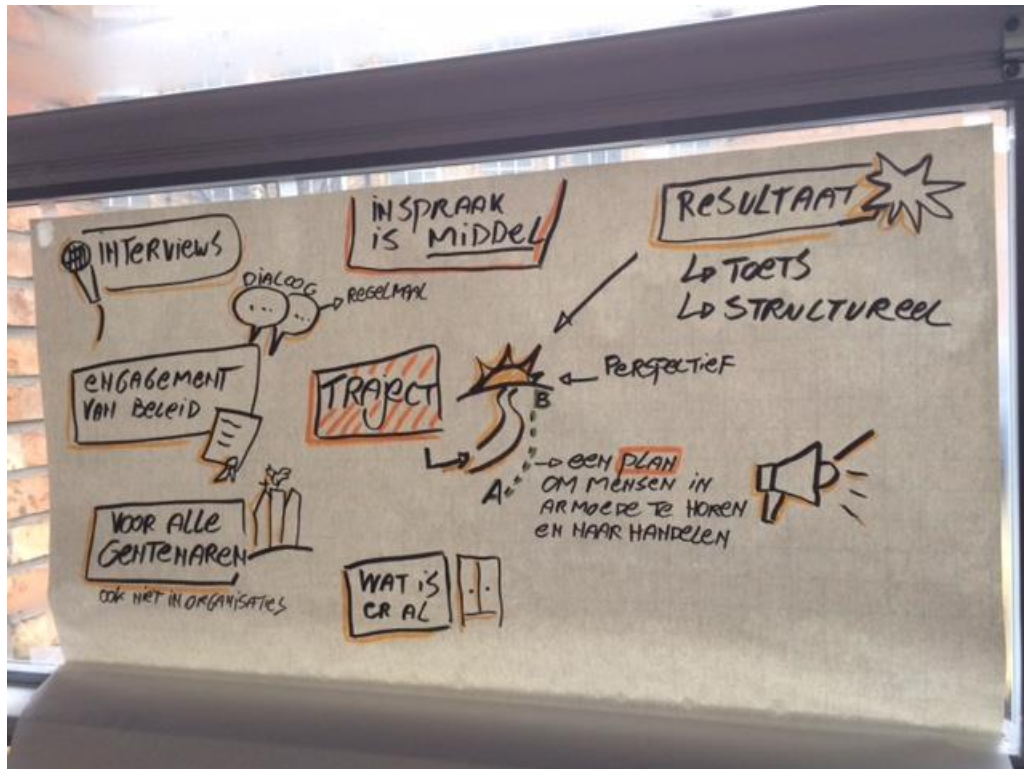 INTERVIEWS
DIALOOG
REGELMAAL
INSPRAAK
IS MIDDEL
RESULTAAT
TOETS
STRUCTUREEL
ENGAGEMENT
VAN BELEID
TRAJECT
PERSPECTIEF
B
A
EEN PLAN
OM MENSEN IN
ARMOEDE TE HOREN
EN NAAR HANDELEN
VOOR ALLE
GENTENAREN
OOK NIET IN ORGANISATIES
WAT IS
ER AL